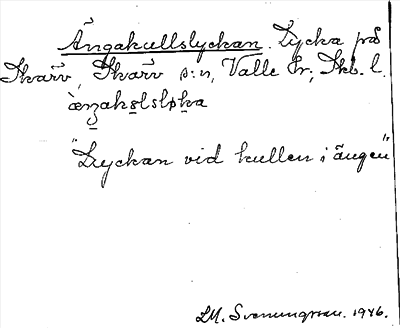 Ängakullslyckan. Lycka på
Skärv, Skärv s:n, Valle hr; Skb. l.
"Lyckan vid kullen i ängen"
LM. Svenungsson. 1946.